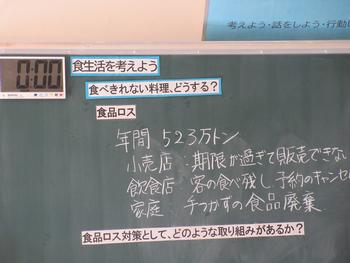 考えよう・話をしよう・行動
0:00
食生活を考えよう
食べきれない料理、どうする？
食品ロス
年間 523万トン
小売店：期限が過ぎて販売できない
飲食店 客の食べ残し、予約のキャンセル
家庭 手つかずの食品廃棄
食品ロス対策として、どのような取り組みがあるか？